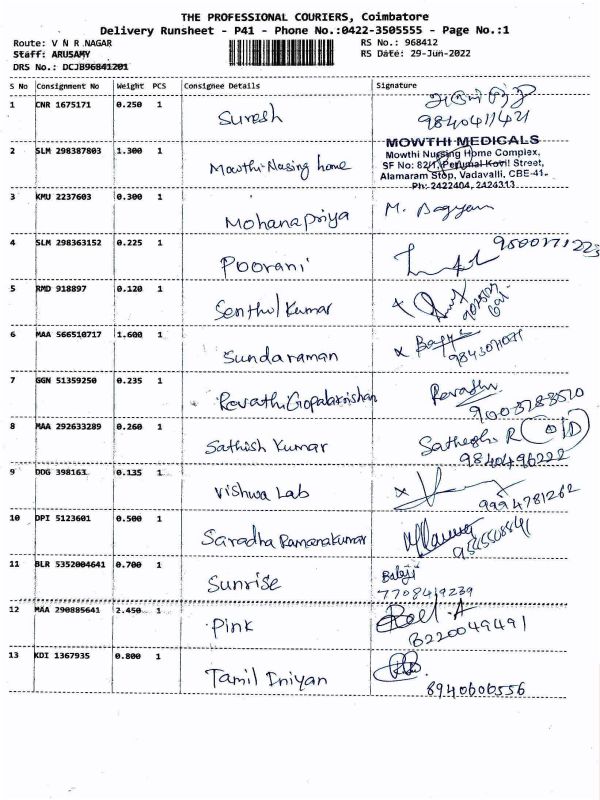 THE PROFESSIONAL COURIERS, Coimbatore
Delivery Runsheet - P41 - Phone No.:0422-3505555 - Page No.:1
Route: V N R NAGAR
RS No.: 968412
Staff: ARUSAMY
RS Date: 29-Jun-2022
DRS No.: DCJB96841201
S No Consignment No Weight PCS Consignee Details Signature
1 CNR 1675171 0.250 1 Suresh
9840411421
2 SLM 298387803 1.300 1 Mowthi Nursing home
MOWTHI MEDICALS
Mowthi Nursing Home Complex,
SF No: 82/1, Perumal Kovil Street,
Alamaram Stop, Vadavalli, CBE-41.
Ph: 2422404, 2424313
3 KMU 2237603 0.300 1 Mohanapriya M.
4 SLM 298363152 0.225 1 Poorani
5 RMD 918897 0.120 1 Senthil Kumar
6 MAA 566510717 1.600 1 Sundaraman
7 GGN 51359250 0.235 1 RevathiGopalakrishan Revathi
8 MAA 292633289 0.260 1 Sathish Kumar
9840496222
9 DDG 398163 0.135 1 Vishwa Lab
9994781262
10 DPI 5123601 0.500 1 Saradha Ramanakumar
11 BLR 5352004641 0.700 1 Sunrise Balaji
7708419239
12 MAA 290885641 2.450 1 Pink
8220049491
13 KDI 1367935 0.800 1 Tamil Iniyan
8940606556